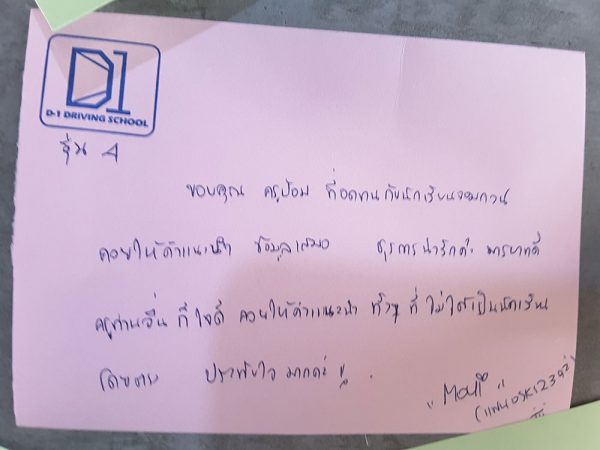 D1
D-1 DRIVING SCHOOL
รุ่น 4
ขอบคุณ ครูป้อม ที่อดทนกับนักเรียนจอมกวน
คอยให้คำแนะนำ ข้อมูลเสมอ ธุรการน่ารักค่ะ มารยาทดี
ครูท่านอื่น ก็ใจดี คอยให้คำแนะนำ ทั้งๆ ที่ไม่ได้เป็นนักเรียน
โดยตรง ประทับใจมากค่ะ